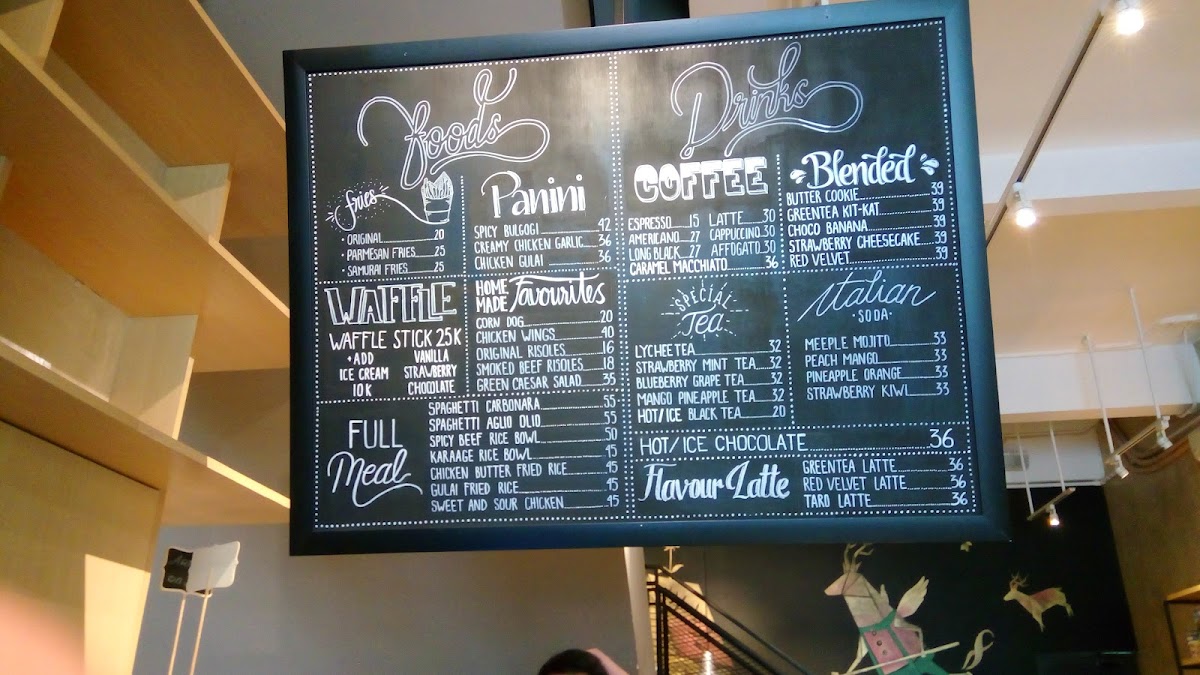 foods
fries
· ORIGINAL 20
· PARMESAN FRIES 25
· SAMURAI FRIES 25
Panini
SPICY BULGOGI 42
CREAMY CHICKEN GARLIC 36
CHICKEN GULAI 36
WAFFLE
WAFFLE STICK 25K
+ADD
ICE CREAM
10K
VANILLA
STRAWBERRY
CHOCOLATE
HOME MADE Favourites
CORN DOG 20
CHICKEN WINGS 40
ORIGINAL RISOLES 16
SMOKED BEEF RISOLES 18
GREEN CAESAR SALAD 35
FULL
Meal
SPAGHETTI CARBONARA 55
SPAGHETTI AGLIO OLIO 55
SPICY BEEF RICE BOWL 50
KARAAGE RICE BOWL 45
CHICKEN BUTTER FRIED RICE 45
GULAI FRIED RICE 45
SWEET AND SOUR CHICKEN 45
Drinks
COFFEE
ESPRESSO 15 LATTE 30
AMERICANO 27 CAPPUCCINO 30
LONG BLACK 27 AFFOGATO 30
CARAMEL MACCHIATO 36
Blended
BUTTER COOKIE 39
GREENTEA KIT-KAT 39
CHOCO BANANA 39
STRAWBERRY CHEESECAKE 39
RED VELVET 39
SPECIAL
Tea
LYCHEE TEA 32
STRAWBERRY MINT TEA 32
BLUEBERRY GRAPE TEA 32
MANGO PINEAPPLE TEA 32
HOT/ICE BLACK TEA 20
Italian
· SODA ·
MEEPLE MOJITO 33
PEACH MANGO 33
PINEAPPLE ORANGE 33
STRAWBERRY KIWI 33
HOT/ICE CHOCOLATE 36
Flavour Latte
GREENTEA LATTE 36
RED VELVET LATTE 36
TARO LATTE 36